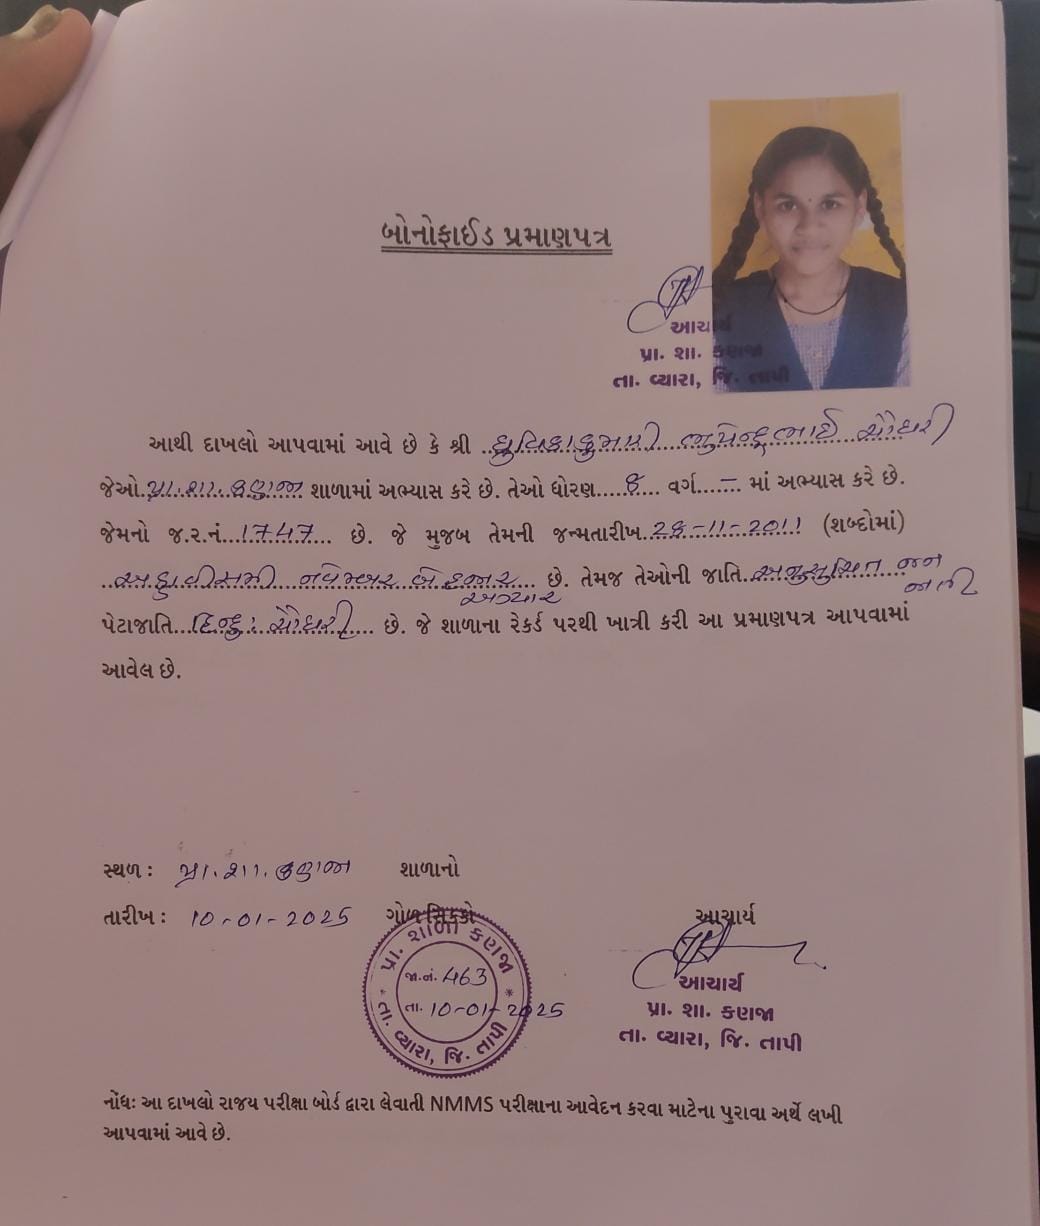 બોનોફાઈડ પ્રમાણપત્ર
આચાર્ય
પ્રા. શા. કણજા
તા. વ્યારા, જિ. તાપી
આથી દાખલો આપવામાં આવે છે કે શ્રી ધ્રુવિકાકુમારી ભુપેન્દ્રભાઈ ચૌધરી
જેઓ પ્રા.શા.કણજા શાળામાં અભ્યાસ કરે છે. તેઓ ધોરણ.....8.... વર્ગ....-... માં અભ્યાસ કરે છે.
જેમનો જ.ર.નં...1747... છે. જે મુજબ તેમની જન્મતારીખ 28-11-2011 (શબ્દોમાં)
અઠ્ઠાવીસમી નવેમ્બર બે હજાર અગ્યાર છે. તેમજ તેઓની જાતિ અનુસુચિત જન જાતી
પેટાજાતિ...હિન્દુ: ચૌધરી.... છે. જે શાળાના રેકર્ડ પરથી ખાત્રી કરી આ પ્રમાણપત્ર આપવામાં
આવેલ છે.
સ્થળ : પ્રા.શા.કણજા શાળાનો
તારીખ : 10-01-2025 ગોળ સિક્કો આચાર્ય
પ્રા. શાળા કણજા
જા.નં. 463
તા. 10-01-2025
તા. વ્યારા, જિ. તાપી
આચાર્ય
પ્રા. શા. કણજા
તા. વ્યારા, જિ. તાપી
નોંધઃ આ દાખલો રાજય પરીક્ષા બોર્ડ દ્વારા લેવાતી NMMS પરીક્ષાના આવેદન કરવા માટેના પુરાવા અર્થે લખી
આપવામાં આવે છે.